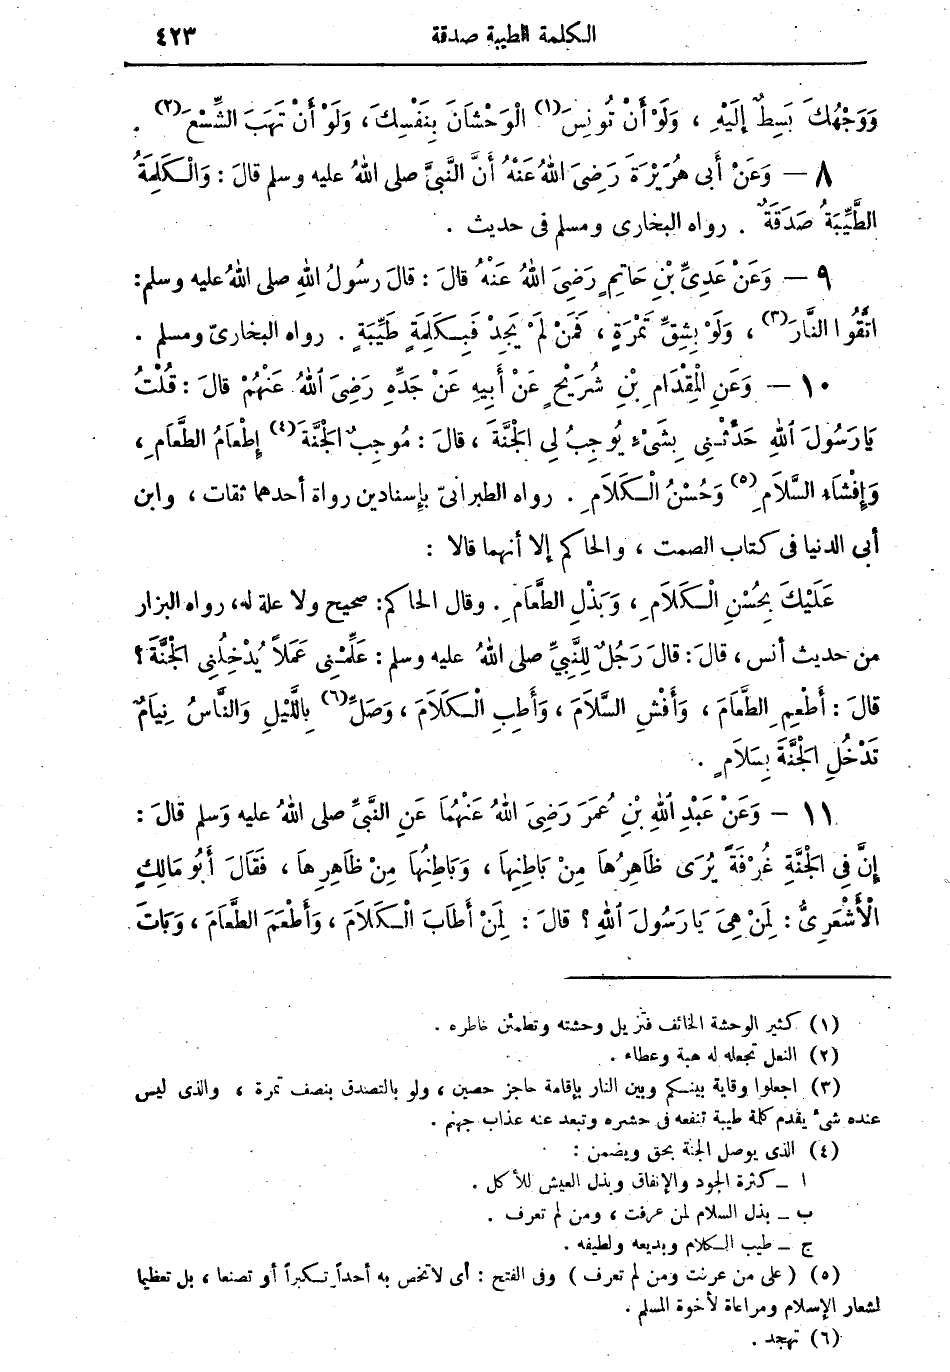 الكلمة الطيبة صدقة ٤٢٣
وَوَجْهُكَ بَسِطٌ إِلَيْهِ ، وَلَوْ أَنْ تُونِسَ (١) الْوَحْشَانَ بِنَفْسِكَ ، وَلَوْ أَنْ تَهَبَ الشِّسْعَ (٢) .
٨ — وَعَنْ أَبِى هُرَيْرَةَ رَضِىَ اللهُ عَنْهُ أَنَّ النَّبِىَّ صلى اللهُ عليه وسلم قالَ : وَالْكَلِمَةُ
الطَّيِّبَةُ صَدَقَةٌ . رواه البخارى ومسلم فى حديث .
٩ — وَعَنْ عَدِىِّ بْنِ حَاتِمٍ رَضِىَ اللهُ عَنْهُ قالَ : قالَ رسولُ اللهِ صلى اللهُ عليه وسلم :
اتَّقُوا النَّارَ (٣) ، وَلَوْ بِشِقِّ تَمْرَةٍ ، فَمَنْ لَمْ يَجِدْ فَبِكَلِمَةٍ طَيِّبَةٍ . رواه البخارىّ ومسلم .
١٠ — وَعَنِ الْمِقْدَامِ بْنِ شُرَيْحٍ عَنْ أَبِيهِ عَنْ جَدِّهِ رَضِىَ اللهُ عَنْهُمْ قالَ : قُلْتُ
يَارَسُولَ اللهِ حَدِّثْنِى بِشَىْءٍ يُوجِبُ لِى الْجَنَّةَ ، قالَ : مُوجِبُ الْجَنَّةَ (٤) إِطْعَامُ الطَّعَامِ ،
وَإِفْشَاءِ السَّلاَمِ (٥) وَحُسْنُ الْكَلاَمِ . رواه الطبرانىّ بإسنادين رواة أحدهما ثقات ، وابن
أبى الدنيا فى كتاب الصمت ، والحاكم إلا أنهما قالا :
عَلَيْكَ بِحُسْنِ الْكَلاَمِ ، وَبَذْلِ الطَّعَامِ . وقال الحاكم : صحيح ولا علة له ، رواه البزار
من حديث أنس ، قالَ : قالَ رَجُلٌ لِلنَّبِيِّ صلى اللهُ عليه وسلم : عَلِّمْنِى عَمَلاً يُدْخِلُنِى الْجَنَّةَ ؟
قالَ : أَطْعِمِ الطَّعَامَ ، وَأَفْشِ السَّلاَمَ ، وَأَطِبِ الْكَلاَمَ ، وَصَلِّ (٦) بِاللَّيْلِ وَالنَّاسُ نِيَامٌ
تَدْخُلِ الْجَنَّةَ بِسَلاَمٍ .
١١ — وَعَنْ عَبْدِ اللهِ بْنِ عُمَرَ رَضِىَ اللهُ عَنْهُمَا عَنِ النَّبِيِّ صلى اللهُ عليه وَسلم قالَ :
إِنَّ فِى الْجَنَّةِ غُرْفَةً يُرَى ظَاهِرُهَا مِنْ بَاطِنِهَا ، وَبَاطِنُهَا مِنْ ظَاهِرِهَا ، فَقَالَ أَبُو مَالِكٍ
الْأَشْعَرِىُّ : لِمَنْ هِىَ يَارَسُولَ اللهِ ؟ قالَ : لِمَنْ أَطَابَ الْكَلاَمَ ، وَأَطْعَمَ الطَّعَامَ ، وَبَاتَ
(١) كثير الوحشة الخائف فتزيل وحشته وتطمئن خاطره .
(٢) النعل تجعله له هبة وعطاء .
(٣) اجعلوا وقاية بينكم وبين النار بإقامة حاجز حصين ، ولو بالتصدق بنصف تمرة ، والذى ليس
عنده شىء يقدم كلمة طيبة تنفعه فى حشره وتبعد عنه عذاب جهنم .
(٤) الذى يوصل الجنة بحق ويضمن :
ا — كثرة الجود والإنفاق وبذل العيش للأكل .
ب — بذل السلام لمن عرفت ، ومن لم تعرف .
ج — طيب الكلام وبديعه ولطيفه .
(٥) ( على من عرفت ومن لم تعرف ) وفى الفتح : أى لاتخص به أحداً تكبراً أو تصنعا ، بل تعظيما
لشعار الإسلام ومراعاة لأخوة المسلم .
(٦) تهجد .